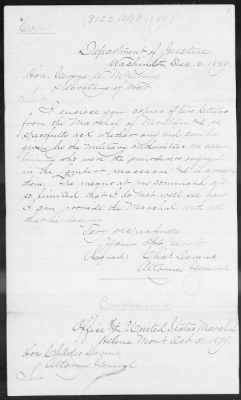 Copy
(8122 AGO 1879)
Department of Justice
Washington Dec 6, 1879.
Hon. George W. McCrary
Secretary of War
Sir
I enclose you copies of two letters
from the Marshal of Montana & re
spectfully ask whether any aid can be
given by the military authorities in
who were the murderers engaged
in the massacre &
them. The means at my command are
so limited that I do not well see
I can provide the Marshal with
that he desires
Very respectfully
Your
(Signed) Chas Devens
Attorney General
Office of the United States Marshal
Helena Mont Oct 31, 1879.
Hon Charles Devens
Attorney General